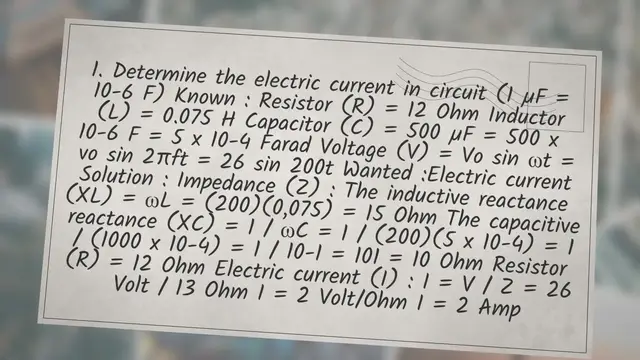 1. Determine the electric current in circuit (1 μF =
10-6 F) Known : Resistor (R) = 12 Ohm Inductor
(L) = 0.075 H Capacitor (C) = 500 μF = 500 x
10-6 F = 5 x 10-4 Farad Voltage (V) = Vo sin ωt =
vo sin 2πft = 26 sin 200t Wanted :Electric current
Solution : Impedance (Z) : The inductive reactance
(XL) = ωL = (200)(0,075) = 15 Ohm The capacitive
reactance (XC) = 1 / ωC = 1 / (200)(5 x 10-4) = 1
/ (1000 x 10-4) = 1 / 10-1 = 101 = 10 Ohm Resistor
(R) = 12 Ohm Electric current (I) : I = V / Z = 26
Volt / 13 Ohm I = 2 Volt/Ohm I = 2 Amp